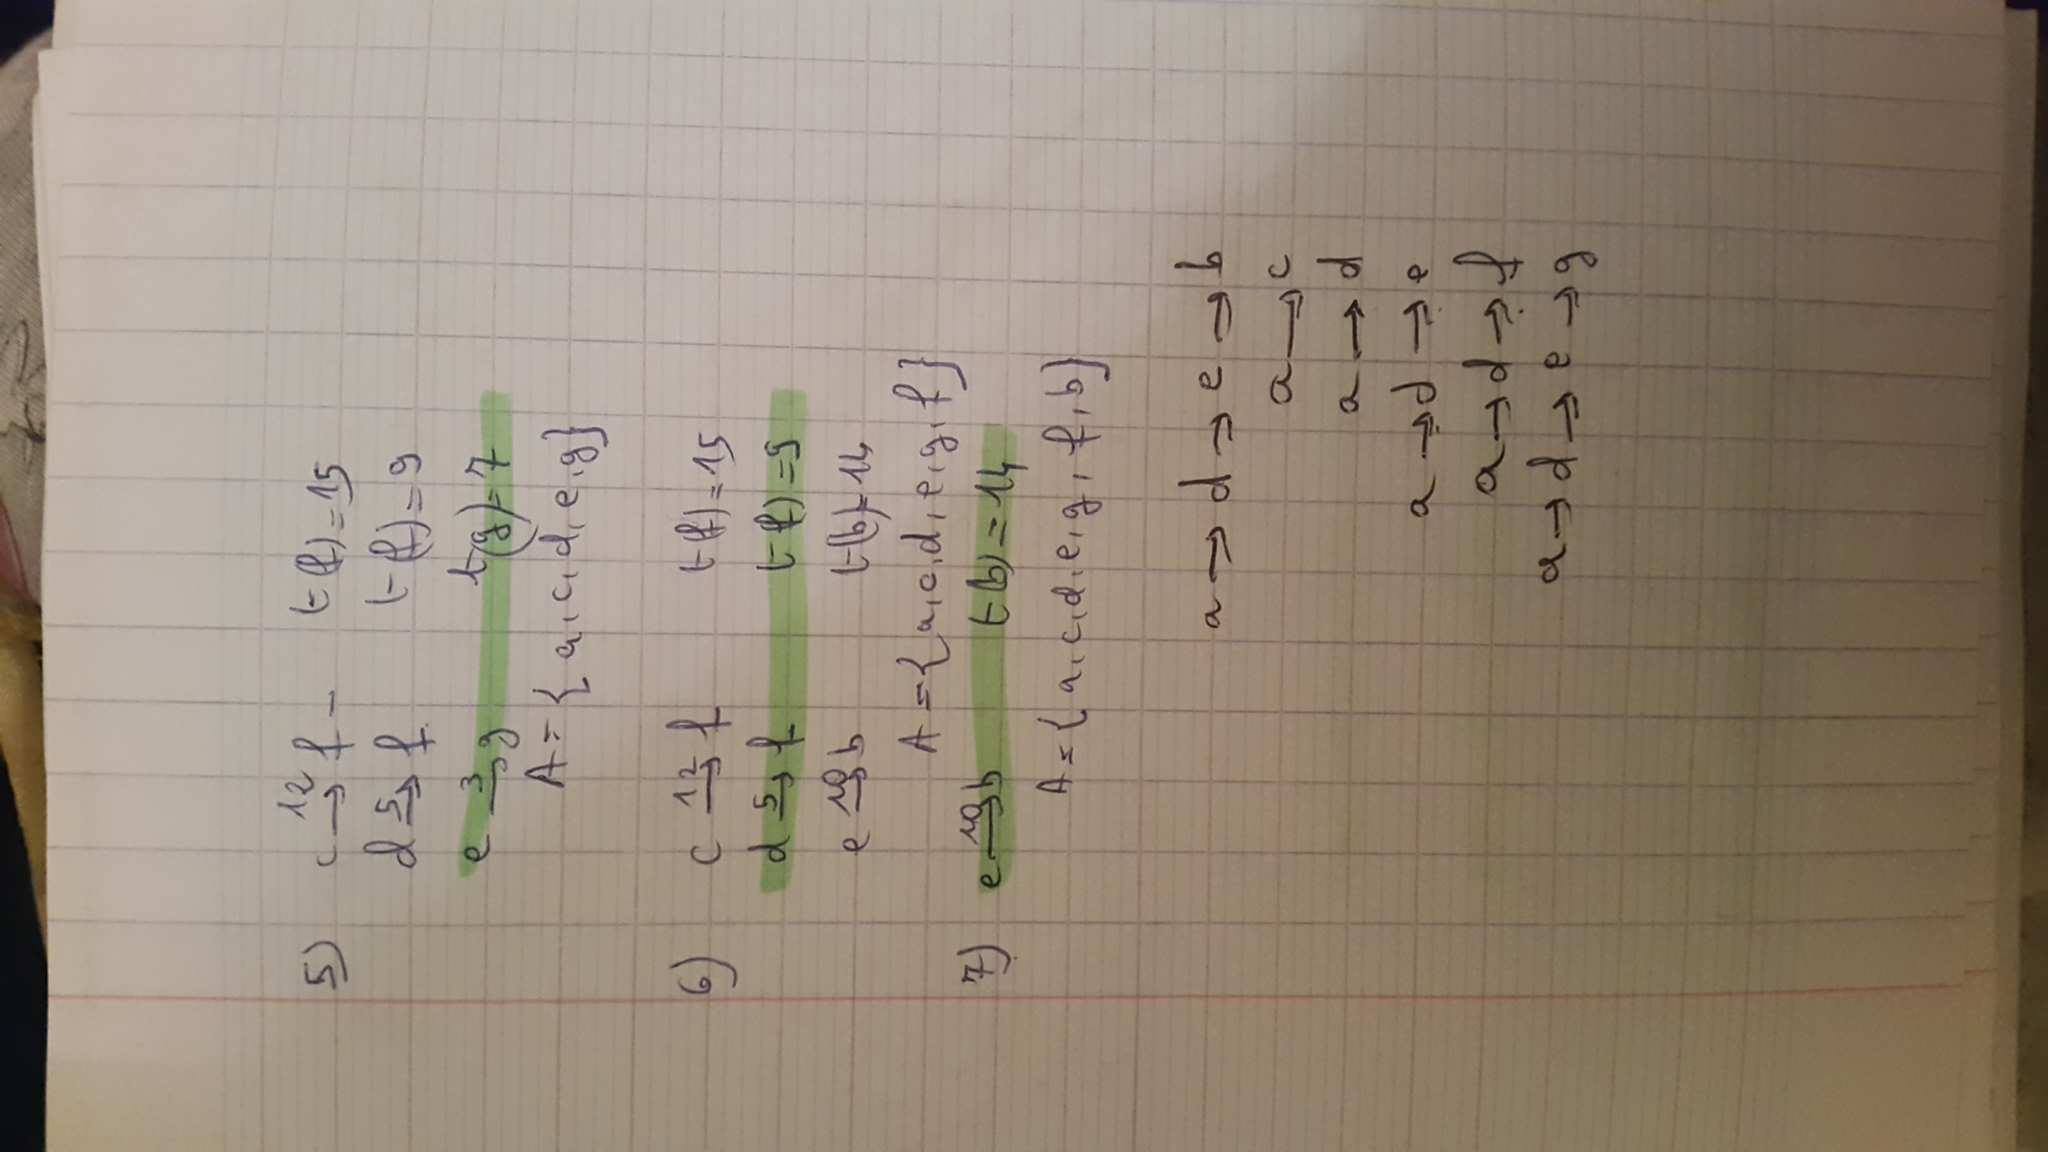 5) c 12→ f - t(f)=15
d 5→ f t(f)=9
e 3→ g t(g)=7
A={a,c,d,e,g}
6) c 12→ f t(f)=15
d 5→ f t(f)=9
e 10→ b t(b)=14
A={a,c,d,e,g,f}
7) e 10→ b t(b)=14
A={a,c,d,e,g,f,b}
a→d→e→b
a→c
a→d
a→d→e
a→d→f
a→d→e→g